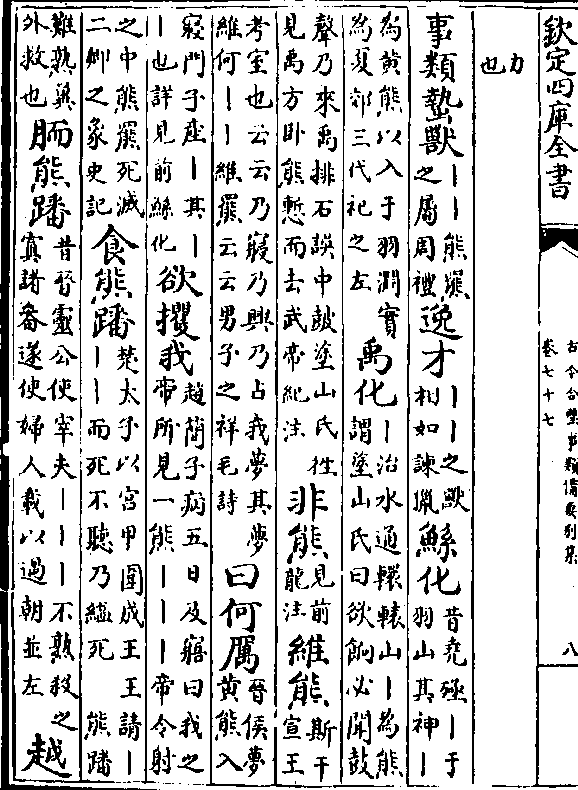 欽定四庫全書
古今合璧事類備要別集
卷七十七
八
力
也
事類蟄獸丨丨熊羆之屬周禮逸才丨丨之獸相如諫獵鯀化昔堯殛丨于羽山其神丨
為黄熊以入于羽淵實為夏郊三代祀之左禹化丨治水通轘轅山丨為熊謂塗山氏曰欲餉必聞鼓
聲乃來禹排石誤中鼓塗山氏徃見禹方卧熊慙而去武帝紀注非熊見前龍注維熊斯干宣王
考室也云云乃寢乃興乃占我夢其夢維何丨丨維羆云云男子之祥毛詩曰何厲晉侯夢黄熊入
寢門子產丨其丨丨也詳見前鯀化欲攫我趙簡子病五日及寤曰我之帝所見一熊丨丨丨帝令射
之中熊羆死滅二卿之象史記食熊蹯楚太子以宫甲圍成王王請丨丨丨而死不聽乃縊死熊蹯
難熟冀外救也胹熊蹯昔晉靈公使宰夫丨丨丨不熟殺之寘諸畚遂使婦人載以過朝並左越